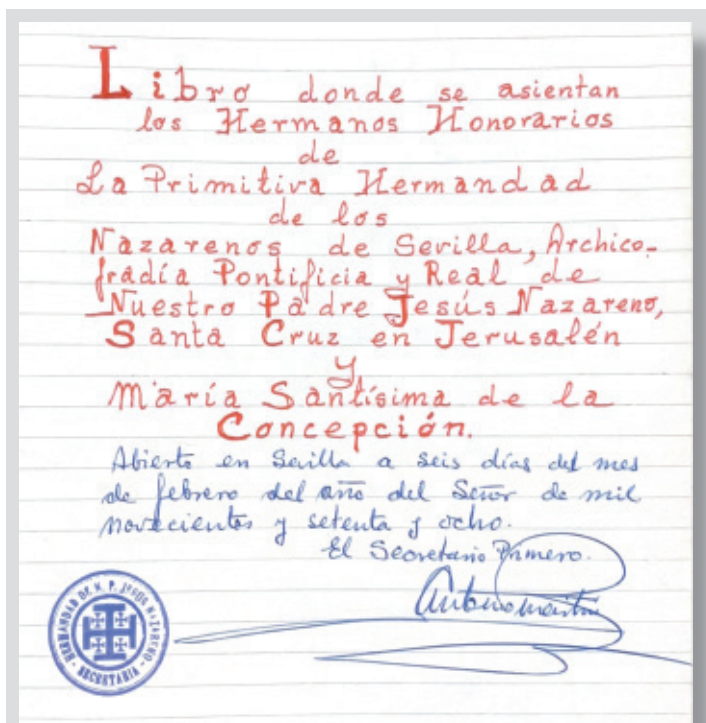 Libro donde se asientan
los Hermanos Honorarios
de
La Primitiva Hermandad
de los
Nazarenos de Sevilla, Archico-
fradía Pontificia y Real de
Nuestro Padre Jesús Nazareno,
Santa Cruz en Jerusalén
y
María Santísima de la
Concepción.
Abierto en Sevilla a seis días del mes
de febrero del año del Señor de mil
novecientos y setenta y ocho.
El Secretario Primero.
HERMANDAD DE N. P. JESUS NAZARENO
- SECRETARIA -